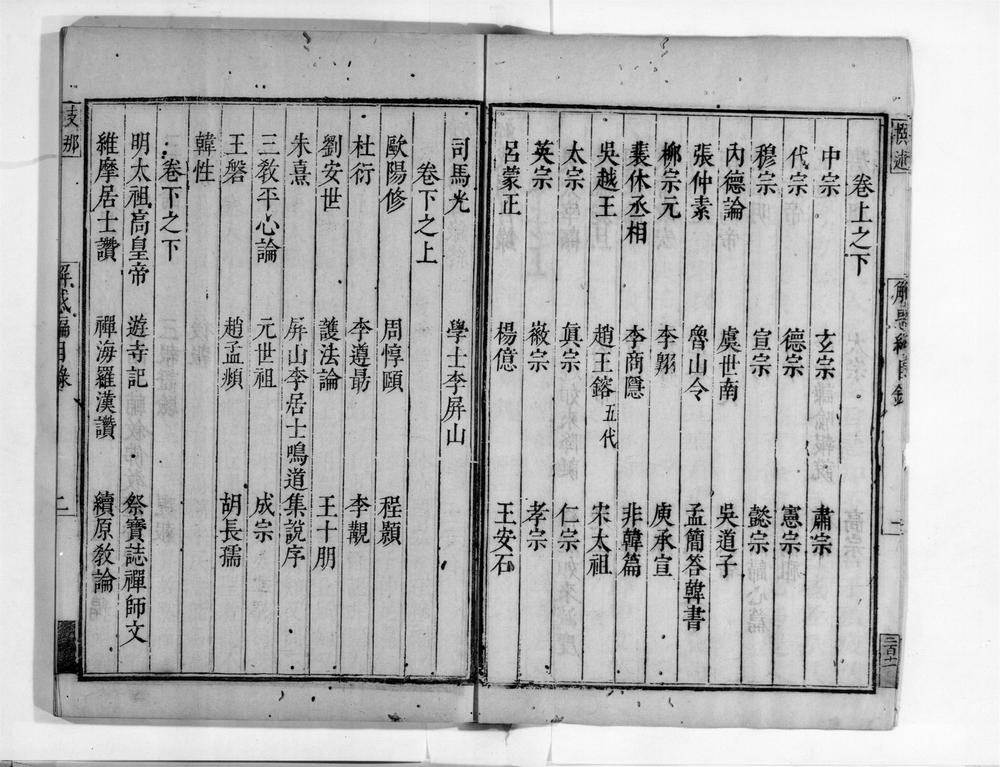 卷上之下
中宗 玄宗 肅宗
代宗 德宗 憲宗
穆宗 宣宗 懿宗
內德論 虞世南 吳道子
張仲素 魯山令 孟簡答韓書
柳宗元 李翱 庾承宣
裴休丞相 李商隱 非韓篇
吳越王 趙王鎔五代 宋太祖
太宗 眞宗 仁宗
英宗 徽宗 孝宗
呂蒙正 楊億 王安石
司馬光 學士李屏山
卷下之上
歐陽修 周惇頤 程顥
杜衍 李遵勗 李覯
劉安世 護法論 王十朋
朱熹 屏山李居士鳴道集說序
三敎平心論 元世祖 成宗
王磐 趙孟頫 胡長孺
韓性
卷下之下
明太祖高皇帝 遊寺記 祭寶誌禪師文
維摩居士讚 禪海羅漢讚 續原敎論
支那
二
撰述
二